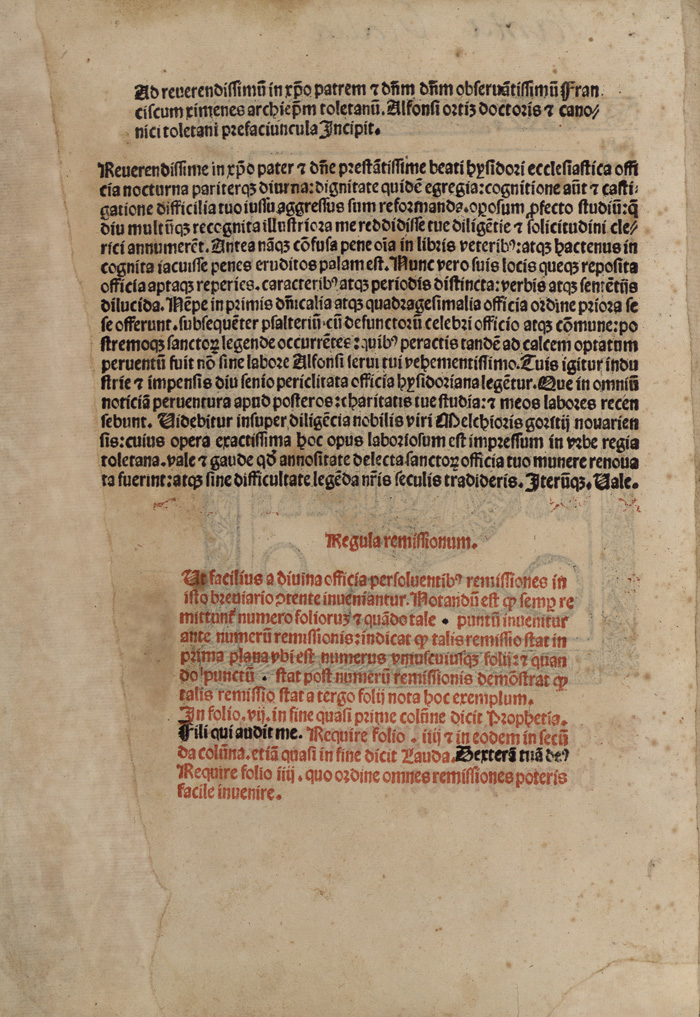 Ad reuerendissimũ in xp̃o patrem ⁊ dñm dñm obseruãtissimũ Fran
ciscum ximenes archiep̃m toletanũ. Alfonsi ortiz doctoris ⁊ cano/
nici toletani prefaciuncula Incipit.
Reuerendissime in xp̃o pater ⁊ dñe prestãtissime beati hysidori ecclesiastica offi
cia nocturna pariterqȝ diurna: dignitate quidẽ egregia: cognitione aũt ⁊ casti-
gatione difficilia tuo iussu aggressus sum reformanda. oꝑosum ꝓfecto studiũ: q̃
diu multũqȝ recognita illustriora me reddidisse tue diligẽtie ⁊ solicitudini cle/
rici annumerẽt. Antea nãqȝ cõfusa pene oĩa in libris veteribꝰ: atqȝ hactenus in
cognita iacuisse penes eruditos palam est. Nunc vero suis locis queqȝ reposita
officia aptaqȝ reperies. caracteribꝰ atqȝ periodis distincta: verbis atqȝ sentẽtijs
dilucida. Nẽpe in primis dñicalia atqȝ quadragesimalia officia ordine priora se
se offerunt. subsequẽter psalteriũ: cũ defunctorũ celebri officio atqȝ cõmune: po
stremoqȝ sanctoꝝ legende occurrẽtes: quibꝰ peractis tandẽ ad calcem optatum
peruentũ fuit nõ sine labore Alfonsi serui tui vehementissimo. Tuis igitur indu
strie ⁊ impensis diu senio periclitata officia hysidoriana legẽtur. Que in omniũ
noticiã peruentura apud posteros: charitatis tue studia: ⁊ meos labores recen
sebunt. Uidebitur insuper diligẽcia nobilis viri Melchioris goricij nouarien
sis: cuius opera exactissima hoc opus laboriosum est impressum in vrbe regia
toletana. vale ⁊ gaude qđ annositate delecta sanctoꝝ officia tuo munere renoua
ta fuerint: atqȝ sine difficultate legẽda nr̃is seculis tradideris. Iterũqȝ. Uale.
Regula remissionum.
Ut facilius a diuina officia persoluentibꝰ remissiones in
isto breuiario ↄtente inueniantur. Notandũ est ꝙ semꝑ re
mittunt̃ numero folioruȝ ⁊ quãdo tale • punctũ inuenitur
ante numerũ remissionis: indicat ꝙ talis remissio stat in
prima plana vbi est numerus vniuscuiusqȝ folij: ⁊ quan
do punctũ • stat post numerũ remissionis demõstrat ꝙ
talis remissio stat a tergo folij nota hoc exemplum.
In folio. vij. in fine quasi prime colũne dicit Prophetia.
Fili qui audit me. Require folio . iiij ⁊ in eodem in secũ
da colũna. etiã quasi in fine dicit Lauda. Dexterã tuã deꝰ
Require folio iiij . quo ordine omnes remissiones poteris
facile inuenire.